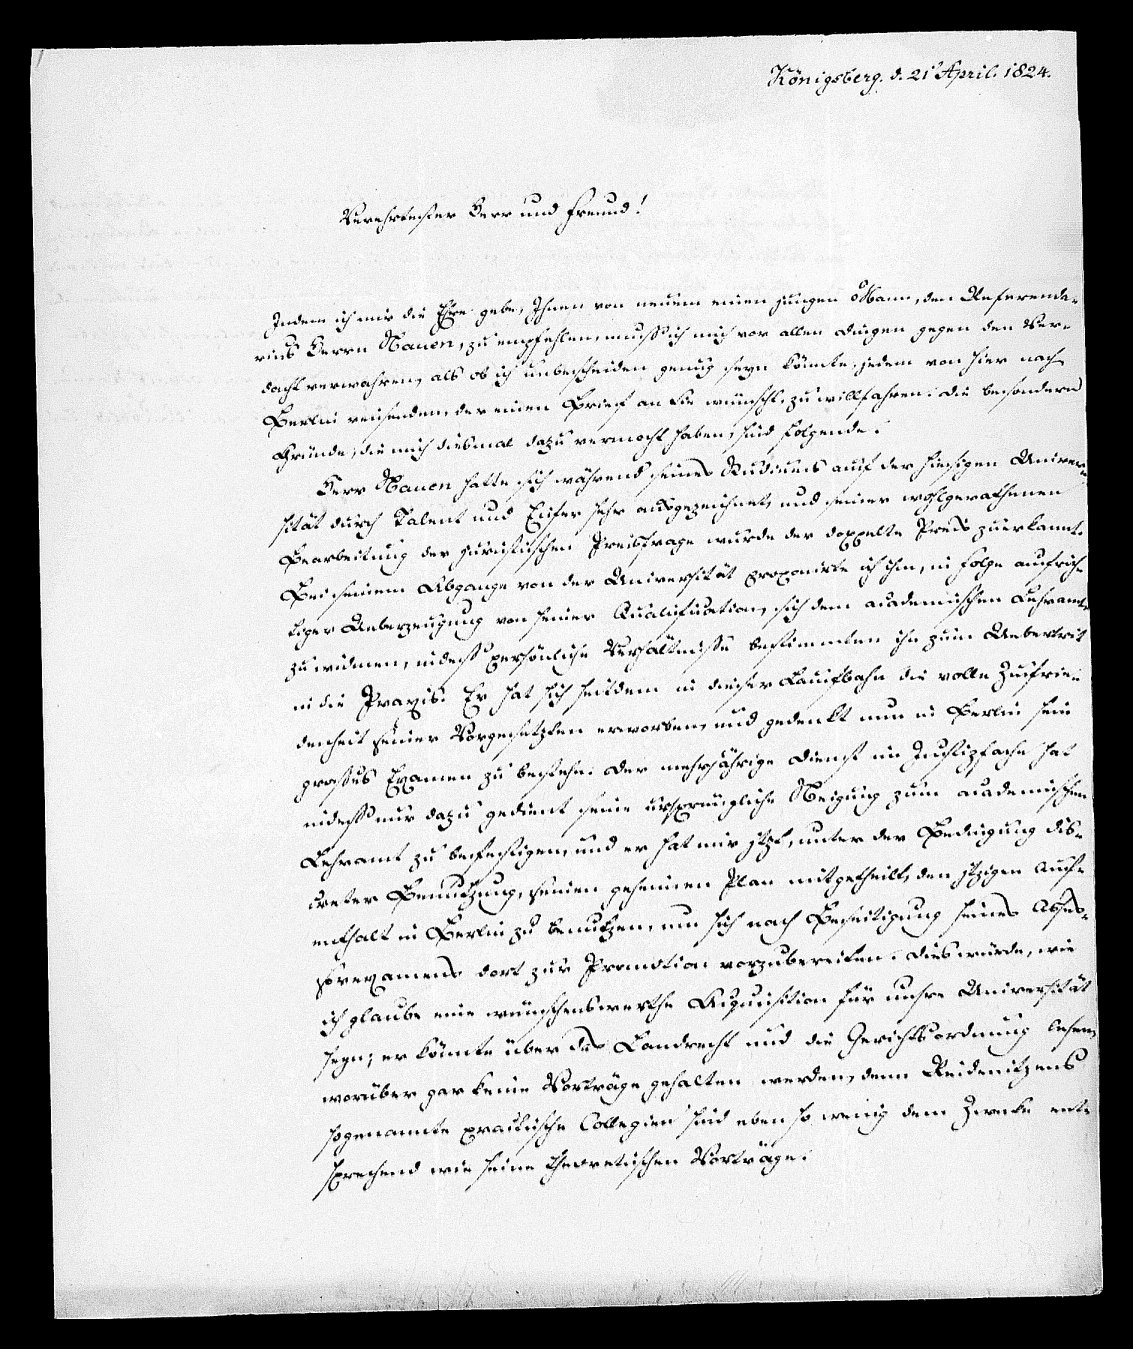 Königsberg. d. 21 April. 1824.
Verehrtester Herr und Freund!
Indem ich mir die Ehre gebe, Ihnen von neuem einen jungen Mann, den Referenda-
rius Herrn Nauen, zu empfehlen, muß ich mich vor allen Dingen gegen den Ver-
dacht verwahren, als ob ich unbescheiden genug seyn könnte, jedem von hier nach
Berlin reisenden, der einen Brief an Sie wünscht, zu willfahren. Die besondern
Gründe, die mich diesmal dazu vermocht haben, sind folgende.
Herr Nauen hatte sich während seines Studiums auf der hiesigen Univer-
sität durch Talent und Eifer sehr ausgezeichnet, und seiner wohlgerathenen
Bearbeitung der juristischen Preisfrage wurde der doppelte Preis zuerkannt.
Bei seinem Abgange von der Universität proponirte ich ihm, in Folge aufrich-
tiger Ueberzeugung von seiner Qualification, sich dem academischen Lehramte
zu widmen, indeß persönliche Verhältnisse bestimmten ihn zum Uebertritt
in die Praxis. Er hat sich seitdem in dieser Laufbahn die volle Zufrie-
denheit seiner Vorgesetzten erworben, und gedenkt nun in Berlin sein
großes Examen zu bestehn. Der mehrjährige Dienst im Justizfache hat
indeß nur dazu gedient seine ursprüngliche Neigung zum academischen
Lehramt zu befestigen, und er hat mir jetzt, unter der Bedingung dis-
creter Benutzung, seinen geheimen Plan mitgetheilt, den jetzigen Auf-
enthalt in Berlin zu benutzen, um sich nach Beseitigung seines Asses-
sorexamens dort zur Promotion vorzubereiten. Dies würde, wie
ich glaube eine wünschenswerthe Acquisition für unsre Universität
seyn; er könnte über das Landrecht und die Gerichtsordnung lesen,
worüber gar keine Vorträge gehalten werden, denn Reidenitzens
sogenannte practische Collegien sind eben so wenig dem Zwecke ent-
sprechend wie seine theoretischen Vorträge.